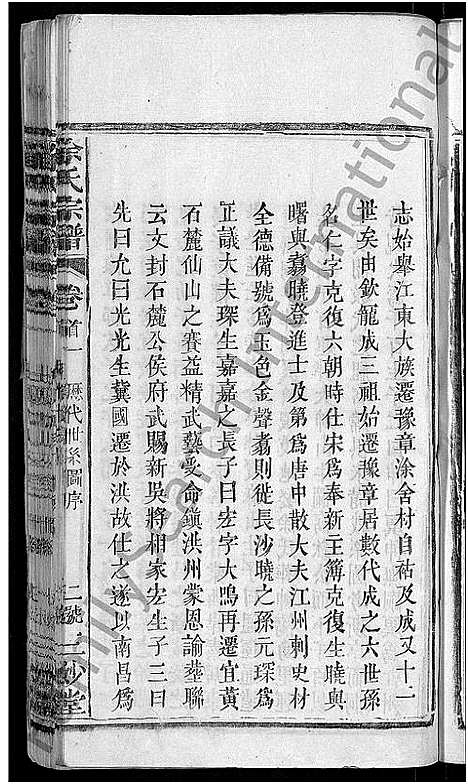 志始舉江東大族遷豫章涂舍材自祜及成又十二
世矣由欽龍成三祖始遷豫章居數代成之六世孫
名仁字克復六朝時仕宋爲奉新主簿克復生曉與
曙與翥曉登進士及第爲唐中散大夫江州刺史材
全德備號爲玉色金聲翥則徙長沙曉之孫元琛爲
正議大夫琛生嘉嘉之長子曰宏字大鳴再遷宜黃
石麓仙山之賽益精武藝受命鎭洪州蒙恩諭塋聯
云文封石麓公侯府武賜新吳將相家宏生子三曰
先曰允曰光光生冀國遷於洪故仕之遂以南昌爲
涂氏宗譜
卷首一
歷代世系圖序
二號
三妙堂
Family Search International